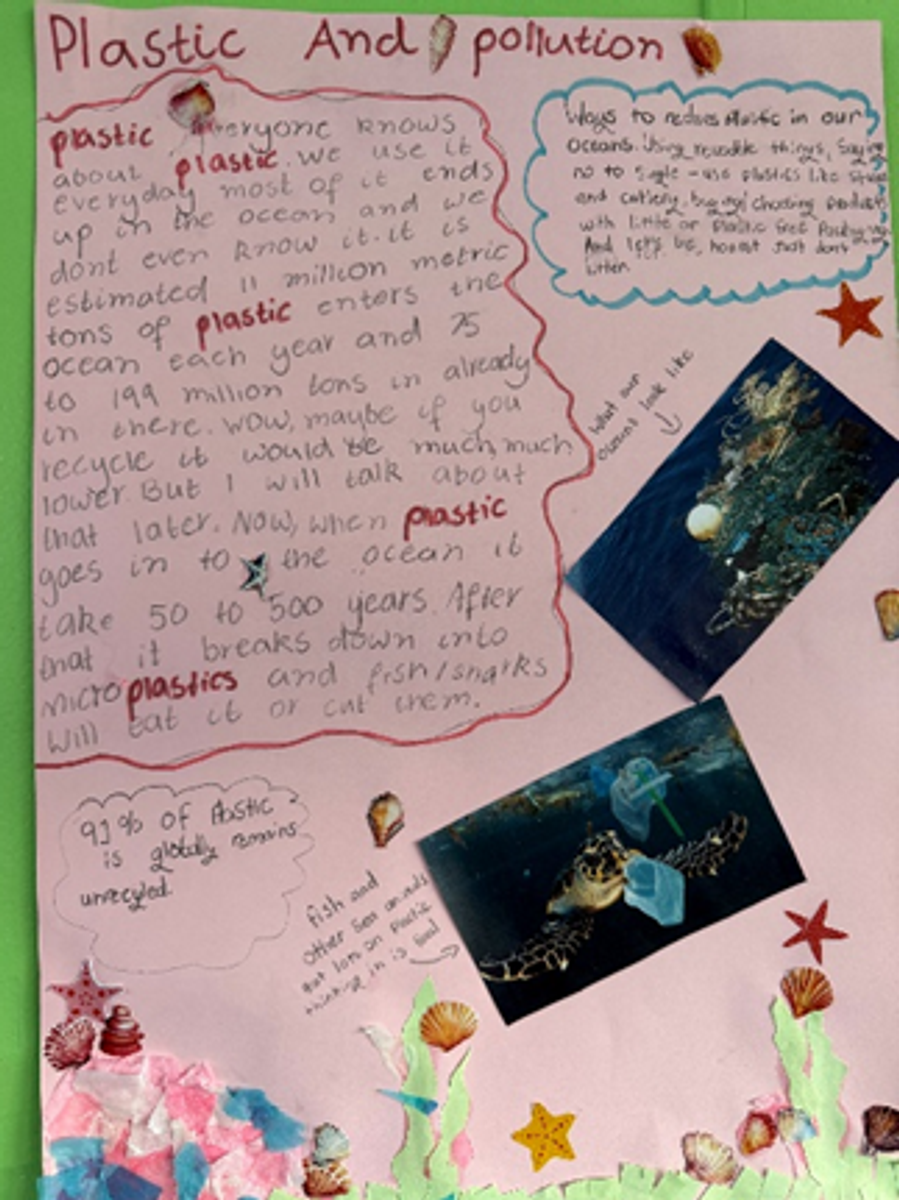 Plastic And pollution
plastic everyone knows
about plastic. We use it
everyday most of it ends
up in the ocean and we
dont even know it. it is
estimated 11 million metric
tons of plastic enters the
ocean each year and 75
to 199 million tons in already
in there. WOW, maybe if you
recycle it would be much, much
lower. But I will talk about
that later. Now, when plastic
goes in to the ocean it
take 50 to 500 years. After
that it breaks down into
microplastics and fish/sharks
will eat it or cut them.
Ways to reduce Plastic in our
oceans. Using reusable things, Saying
no to single-use plastics like straws
and cutlery, buying/choosing products
with little or plastic free Packaging.
And let's be, honest just dont
litter.
What our
oceans look like
91% of Plastic
is globally remains
unrecyled.
fish and
other sea animals
eat lots on plastic
thinking in is food